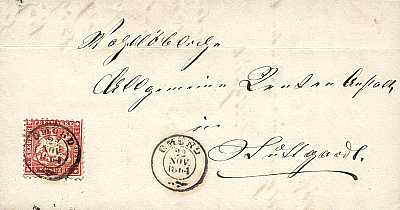 Wohllöbliche
Allgemeine Renten Anstalt
in
Stuttgardt.
GMÜND
22
NOV.
1864
GMÜND
22
NOV.
1864